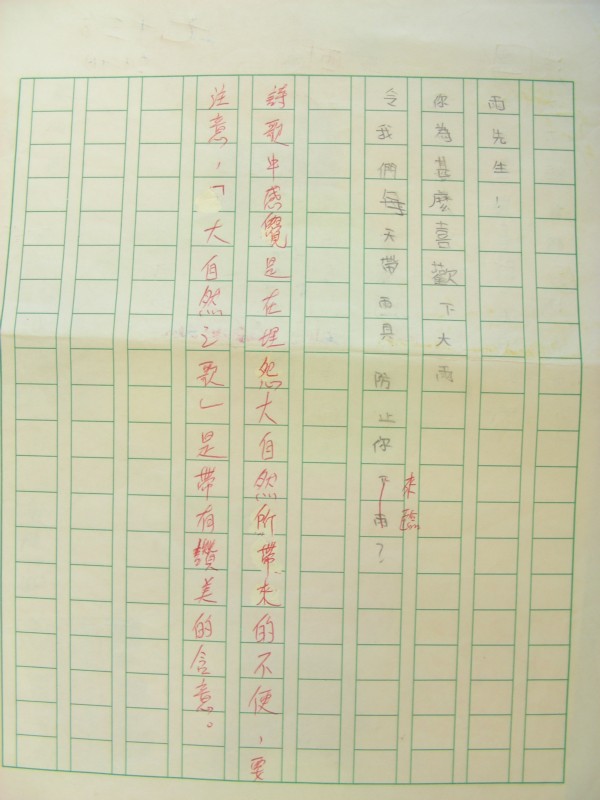 雨先生！
你為甚麼喜歡下大雨
令我們每天帶雨具防止你下雨？
來臨
詩歌中感覺是在埋怨大自然所帶來的不便，要
注意，「大自然之歌」是帶有讚美的含意。